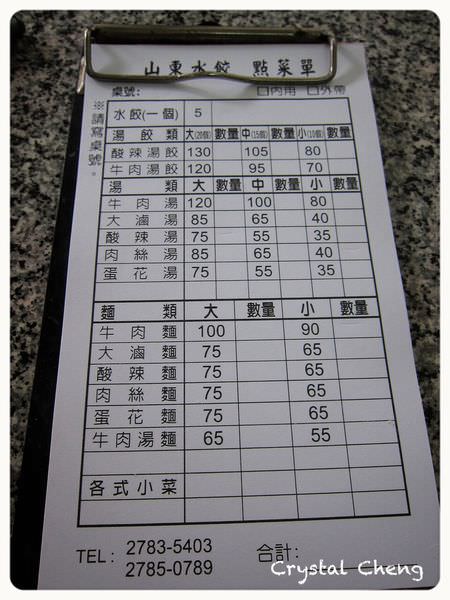 山東水餃 點菜單
桌號: □內用 □外帶
※請寫桌號。
水餃(一個) 5
湯餃類 大(20個) 數量 中(15個) 數量 小(10個) 數量
酸辣湯餃 130 105 80
牛肉湯餃 120 95 70
湯類 大 數量 中 數量 小 數量
牛肉湯 120 100 80
大滷湯 85 65 40
酸辣湯 75 55 35
肉絲湯 85 65 40
蛋花湯 75 55 35
麵類 大 數量 小 數量
牛肉麵 100 90
大滷麵 75 65
酸辣麵 75 65
肉絲麵 75 65
蛋花麵 75 65
牛肉湯麵 65 55
各式小菜
TEL: 2783-5403 合計:
2785-0789
Crystal Cheng